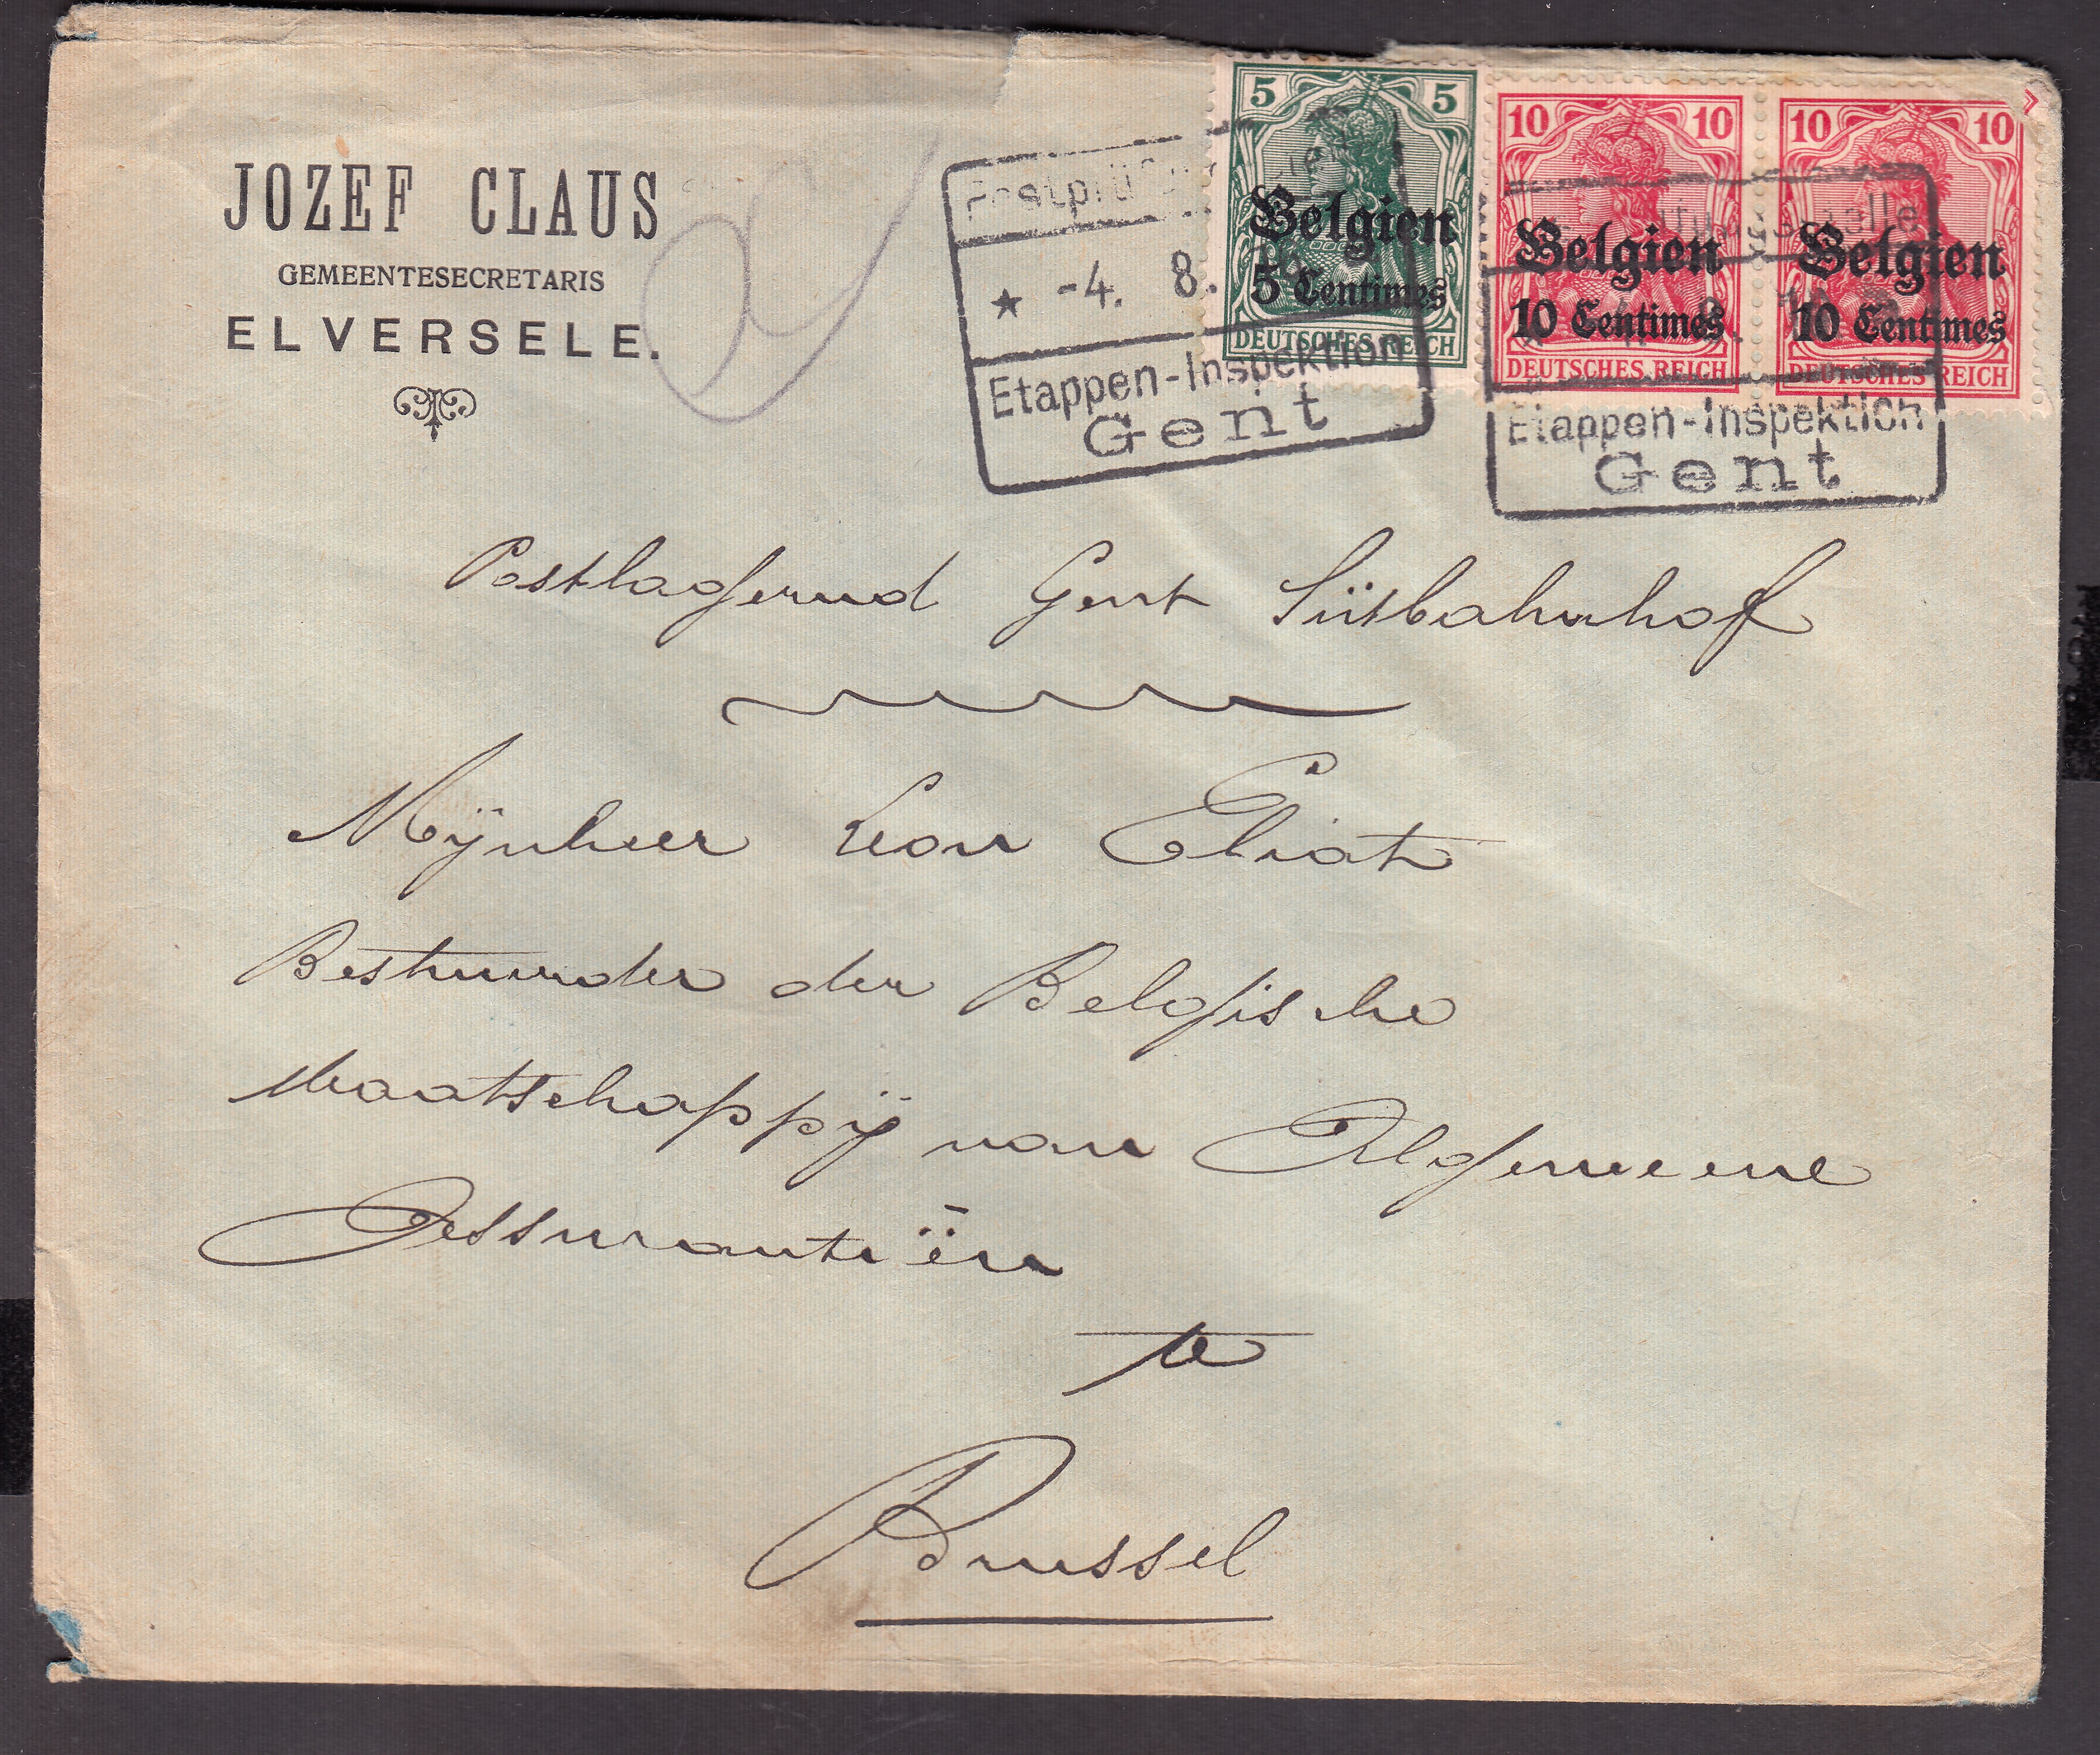 JOZEF CLAUS
GEMEENTESECRETARIS
ELVERSELE.
5 5
Belgien
5 Centimes
DEUTSCHES REICH
10 10
Belgien
10 Centimes
DEUTSCHES REICH
10 10
Belgien
10 Centimes
DEUTSCHES REICH
★ -4. 8.
Etappen-Inspektion
Gent
Etappen-Inspektion
Gent
Postlagernd Gent Sütbahnhof
Mijnheer Leon Eliat
Bestuurder der Belgische
Maatschappij van Algemeene
Assurantiën
te
Brussel